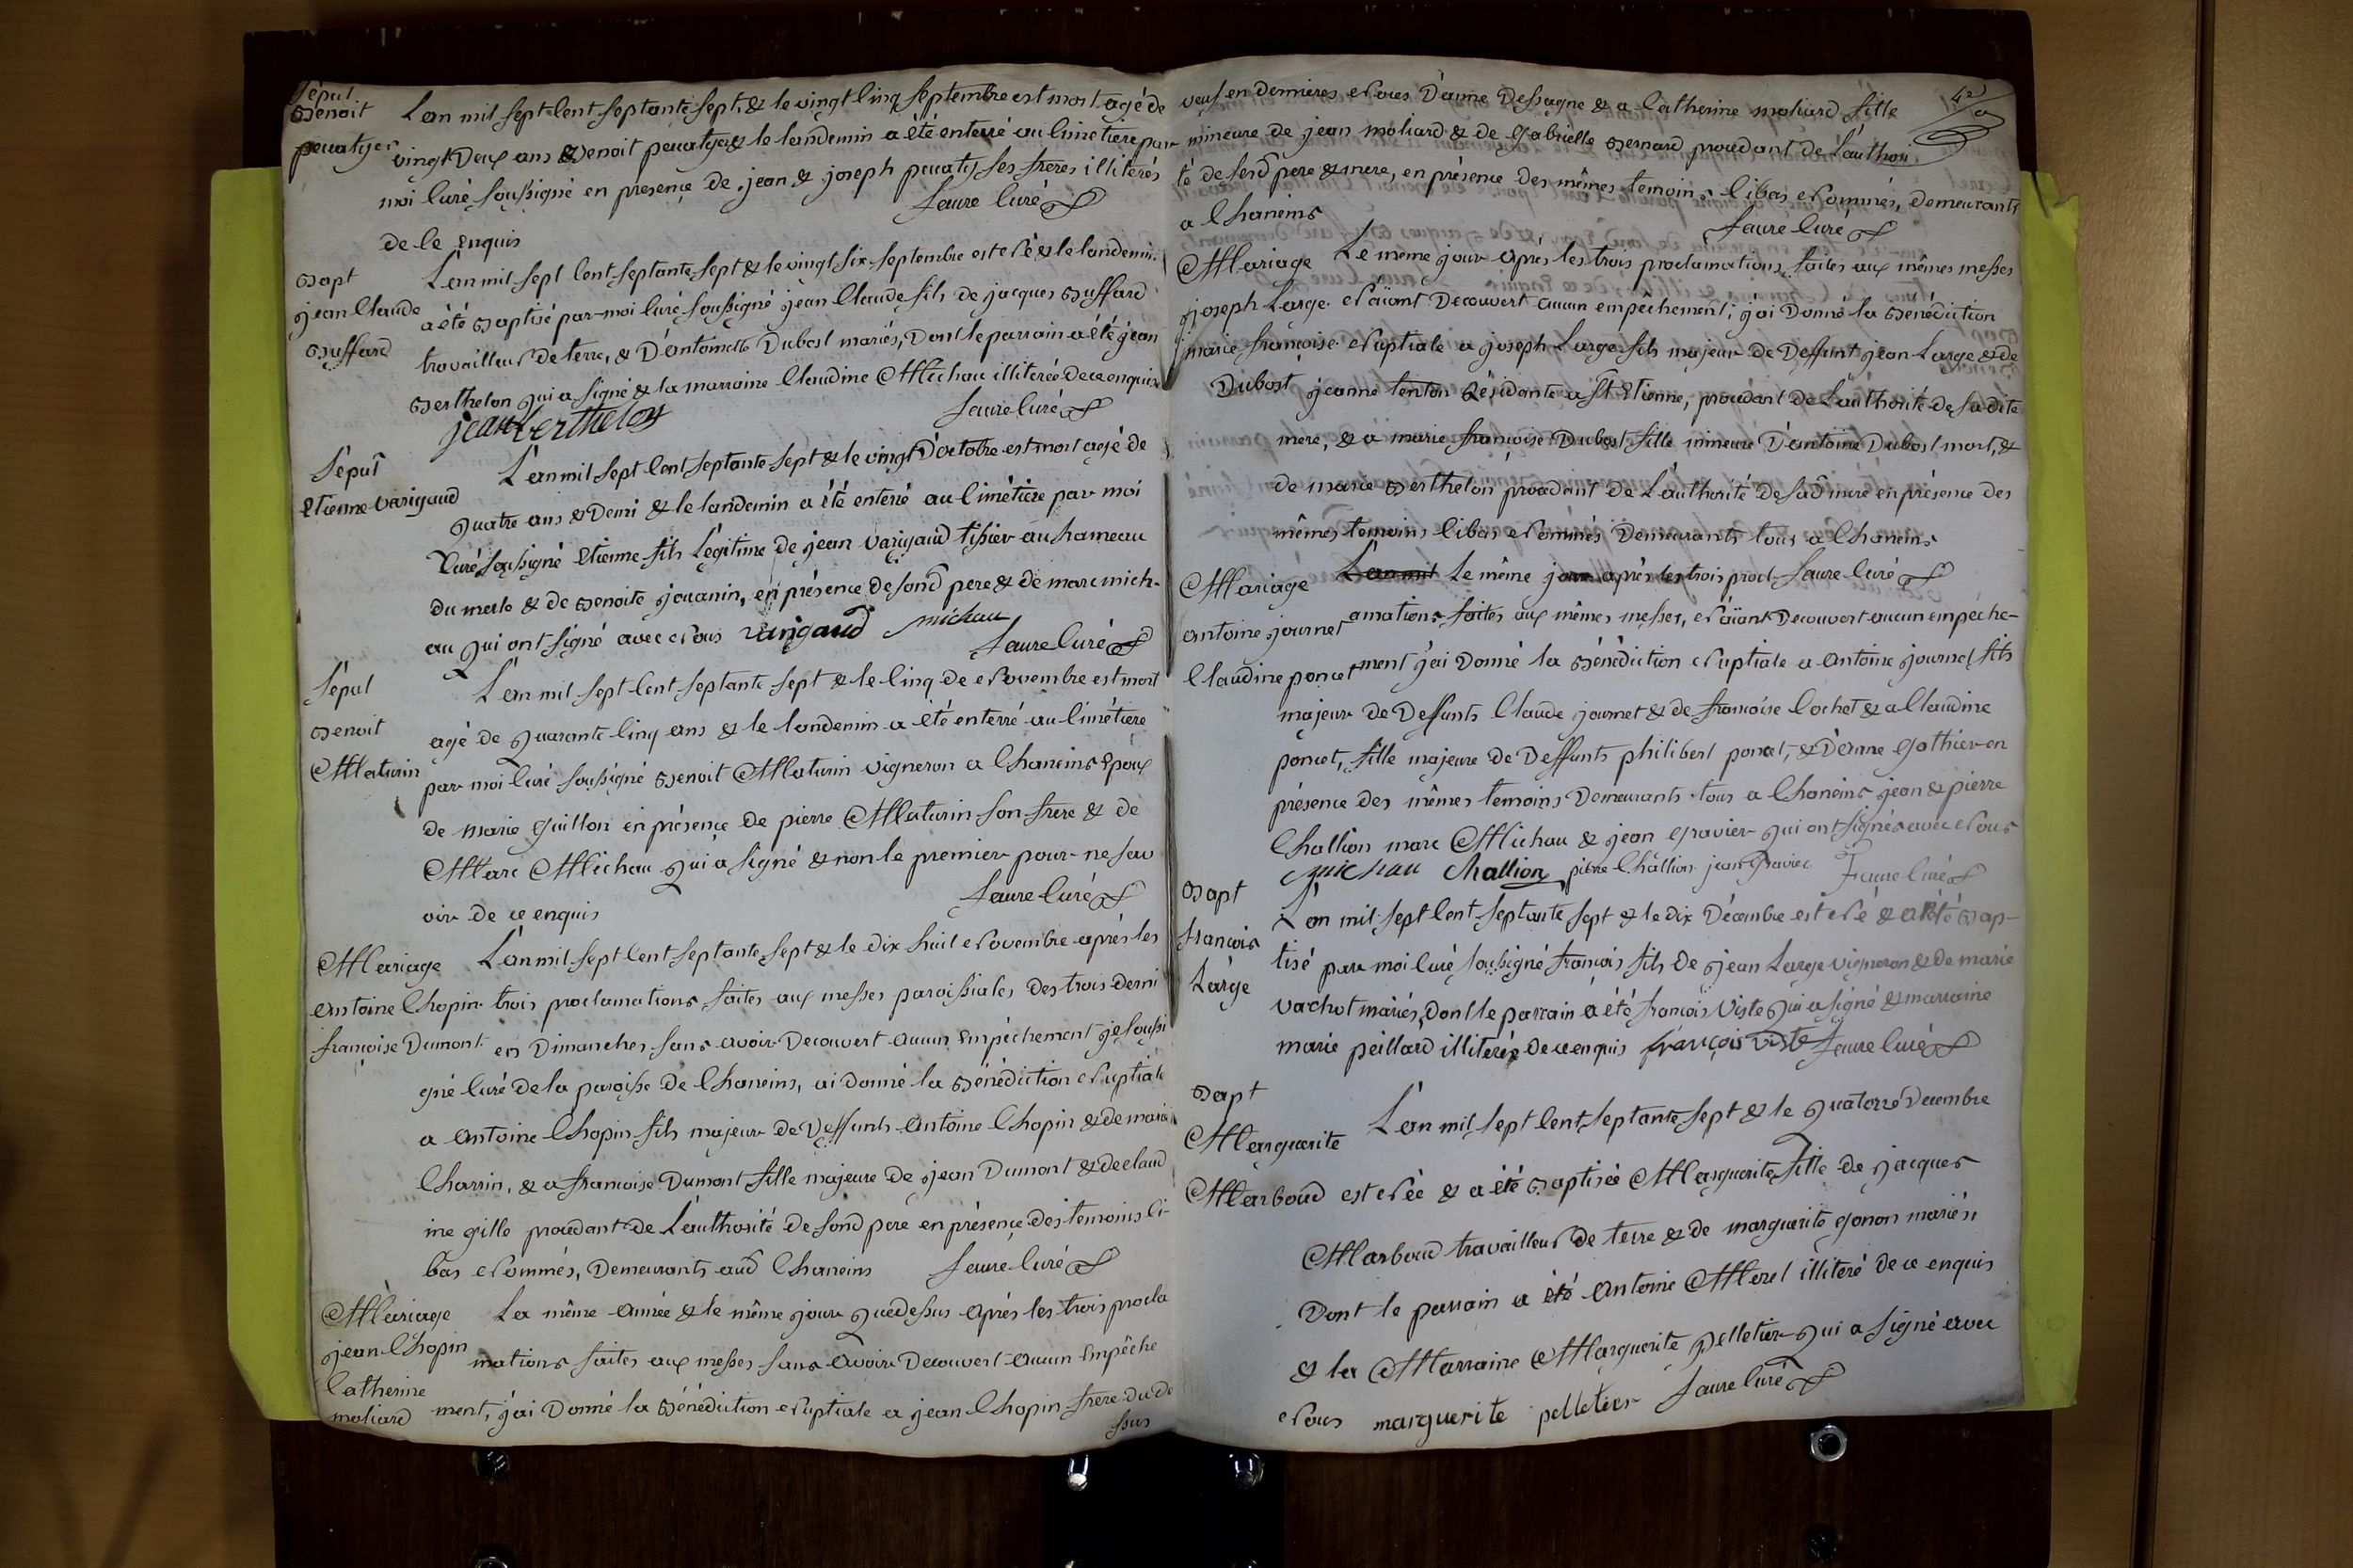 Sépul
Benoit
L'an mil sept cent septante sept, & le vingt cinq septembre est mort agé de
vingt deux ans Benoit & le landemin a été enterré au cimetière par
moi curé soussigné en presence de jean & joseph ses freres illiterés
de ce enquis faure curé
Bapt
jean Claude
Buffard
L'an mil sept cent septante sept & le vingt six septembre est né & le landemin
a été Baptisé par moi curé soussigné jean Claude fils de jacques Buffard
travailleur de terre, & D'antoinette Dubost mariés, Dont le parrain a été jean
Berthelon qui a signé & la marraine Claudine Michau illiterée de ce enquise
jean berthelon faure curé
Sépul
Etienne varigaud
L'an mil sept cent septante sept & le vingt D'octobre est mort agé de
quatre ans & Demi & le landemin a été enterré au cimetière par moi
Curé soussigné Etienne fils Légitime de jean varigaud tissier au hameau
du merlo & de Benoite jouanin, en présence de sond pere & de marc mich-
au qui ont signé avec Nous varigaud michau
faure curé
Sépul
Benoit
Maturin
L'an mil sept cent septante sept & le cinq de Novembre est mort
agé de quarante cinq ans & le landemin a été enterré au cimétiere
par moi curé soussigné Benoit Maturin vigneron a Chaneins Epoux
de marie guillon en présence de pierre Maturin son frere & de
Marc Michau qui a signé & non le premier pour ne sav
oir de ce enquis faure curé
Mariage
antoine Chopin
françoise Dumont
L'an mil sept cent septante sept & le dix huit Novembre après les
trois proclamations faites aux messes paroissiales des trois derni
ers Dimanches sans avoir Decouvert aucun Empéchement je soussi
gné curé de la paroisse de Chaneins, ai donné la Bénédiction Nuptiale
a antoine Chopin fils majeur de Deffunts antoine Chopin & de marie
Charrin, & a françoise Dumont fille majeure de jean Dumont & de claud
ine gille procédant de L'authorité de sond pere en présence des temoins ci-
bas Nommés, Demeurants aud Chaneins faure curé
Mariage
jean Chopin
Catherine
moliard
La même année & le même jour que dessus après les trois procla
mations faites aux messes sans avoir Decouvert aucun Empêche
ment, j'ai Donné la Bénédiction Nuptiale a jean Chopin frere du de
ssus
veuf en dernieres Noces D'anne Dessagne & a Catherine moliard fille
mineure de jean moliard & de gabrielle Bernard procedant de L'authori
té de sesd pere & mere, en présence des mêmes temoins cibas Nommés, demeurants
a Chaneins faure curé
Mariage
joseph Large
marie françoise
Dubost
Le meme jour après les trois proclamations faites aux mêmes messes
N'aiant Decouvert aucun empêchement, j'ai Donné la Bénédiction
Nuptiale a joseph Large fils majeur de Deffunt jean Large & de
jeanne tenton Résidante a St Etienne, procédant de L'authorité de sa dite
mere, & a marie françoise Dubost fille mineure D'antoine Dubost mort, &
de marie Berthelon procedant de L'authorité de sad mere en présence des
mêmes temoins cibas Nommés Demeurants tous a Chaneins
faure curé
Mariage
antoine journet
Claudine poncet
L'an mil Le même jour après les trois procl-
amations faites aux mêmes messes, N'aiant Decouvert aucun empêche-
ment j'ai Donné la Bénédiction Nuptiale a antoine journet fils
majeur de Deffunts Claude journet & de françoise Cochet & a Claudine
poncet, fille majeure de Deffunts philibert poncet, & D'anne gothier en
présence des mêmes temoins Demeurants tous a Chaneins jean & pierre
Challion marc Michau & jean gravier qui ont signés avec Nous
michau challion pierre Challion jean gravier Faure curé
Bapt
françois
Large
L'an mil sept cent septante sept & le dix Décembre est Né & a été Bap-
tisé par moi curé soussigné françois fils de jean Large vigneron & de marie
vachot mariés, Dont le parrain a été françois viste qui a signé & marraine
marie peillard illiterée de ce enquis françois viste faure curé
Bapt
Marguerite
Marboud
L'an mil sept cent septante sept & le quatorze Decembre
est Née & a été Baptisée Marguerite fille de jacques
Marboud travailleur de terre & de marguerite gonon mariés
Dont le parrain a été antoine Morel illiteré de ce enquis
& la Marraine Marguerite pelletier qui a signé avec
Nous marguerite pelletier faure curé